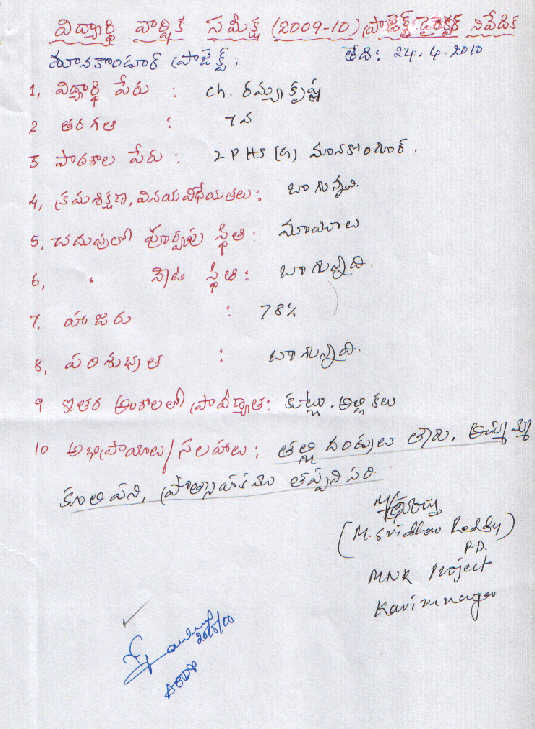 విద్యార్థి వార్షిక సమీక్ష (2009-10) ప్రాజెక్ట్ డైరెక్టర్ నివేదిక
మానకొండూర్ ప్రాజెక్ట్. తేది: 24.4.2010
1, విద్యార్థి పేరు : ch. రమ్యకృష్ణ
2 తరగతి : 7వ
3 పాఠశాల పేరు : ZPHS (G) మానకొండూర్.
4, క్రమశిక్షణ, వినయవిధేయతలు: బాగున్నవి
5, చదువులో పూర్వపు స్థితి: మామూలు
6, " నేటి స్థితి: బాగున్నది.
7, హాజరు : 78%
8, పరిశుభ్రత : బాగున్నది.
9 ఇతర అంశాలలో ప్రావీణ్యత: కుట్లు, అల్లికలు
10 అభిప్రాయాలు/సలహాలు: తల్లి దండ్రులు లేరు. అమ్మమ్మ
కూలి పని, ప్రోత్సాహకము తప్పనిసరి
(M. Sridhar Reddy)
P.D.
MNK Project
Karimnagar